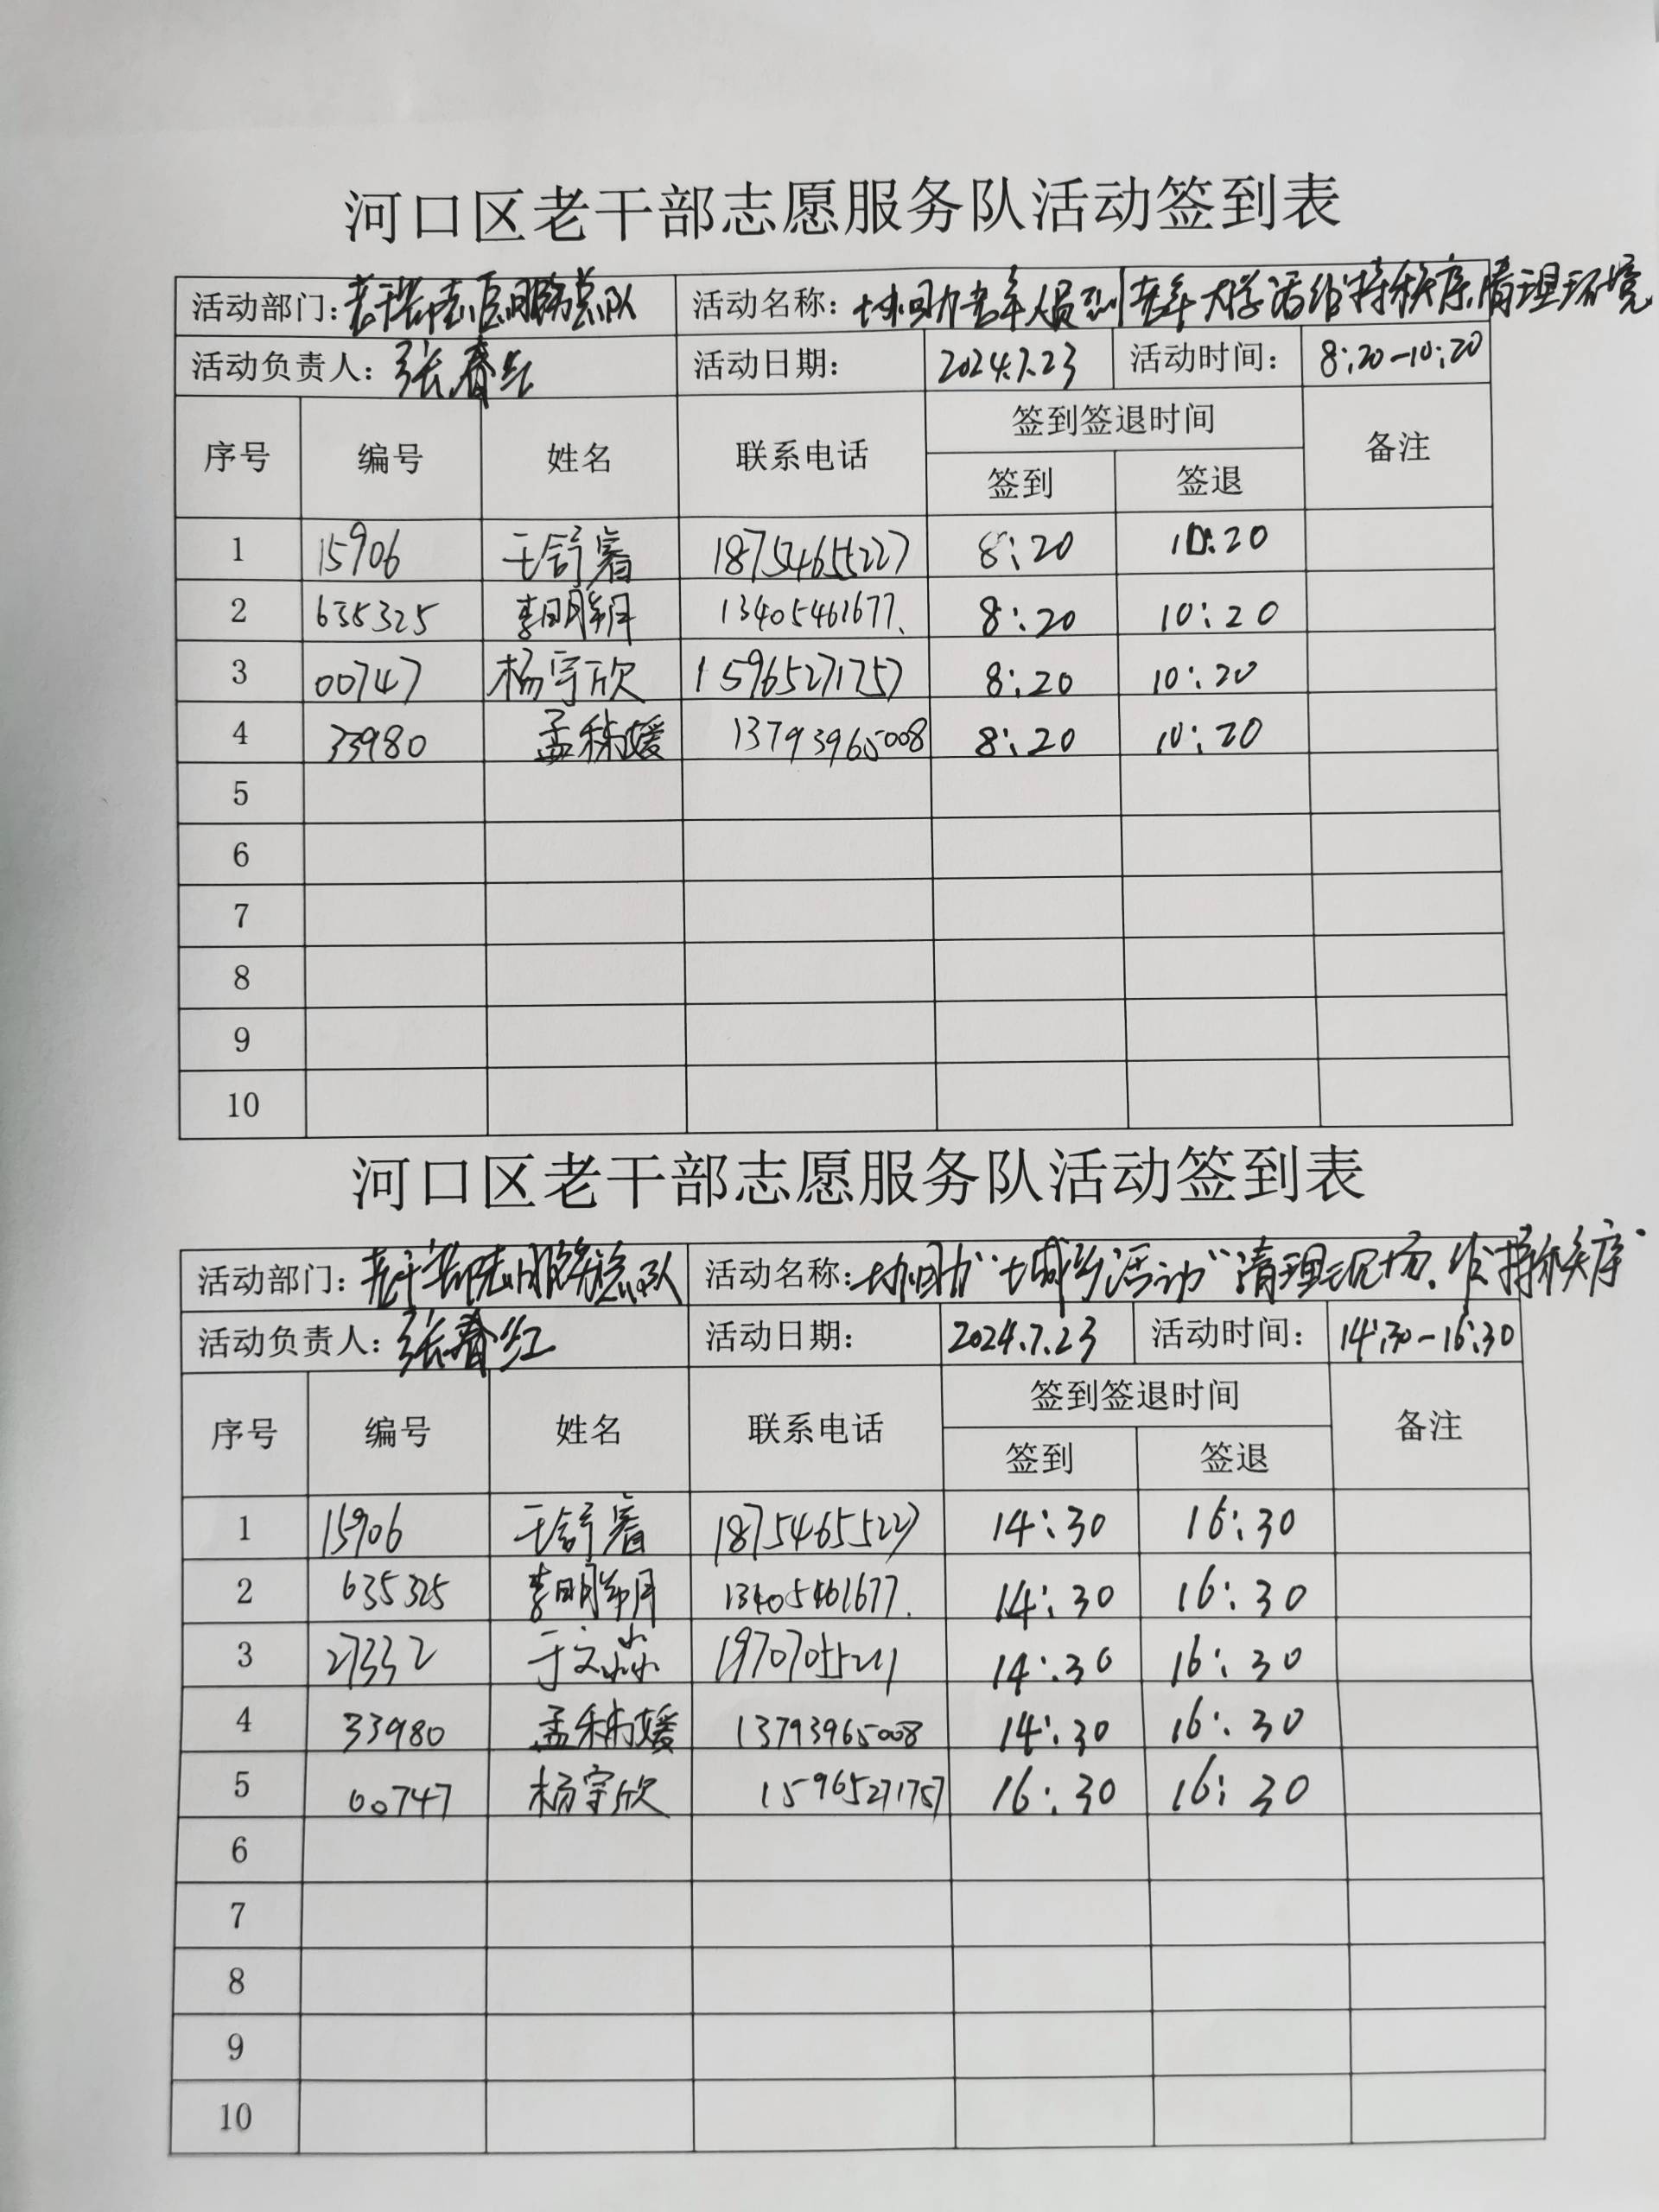 河口区老干部志愿服务队活动签到表
活动部门: 老干部志愿服务总队 活动名称: 协助老年人员到老年大学活动维持秩序,清理环境
活动负责人: 张春红 活动日期: 2024.7.23 活动时间: 8:20-10:20
序号 编号 姓名 联系电话 签到签退时间 备注
签到 签退
1 15906 王舒 18754655227 8:20 10:20
2 635325 李明 13405461677. 8:20 10:20
3 00747 杨宇欣 15965271757 8:20 10:20
4 33980 孟 媛 13793965008 8:20 10:20
5
6
7
8
9
10
河口区老干部志愿服务队活动签到表
活动部门: 老干部志愿服务总队 活动名称: 协助“城乡活动”清理现场,维持秩序
活动负责人: 张春红 活动日期: 2024.7.23 活动时间: 14:30-16:30
序号 编号 姓名 联系电话 签到签退时间 备注
签到 签退
1 15906 王舒 18754655227 14:30 16:30
2 635325 李明 13405461677. 14:30 16:30
3 27332 于文淼 14:30 16:30
4 33980 孟 媛 13793965008 14:30 16:30
5 00747 杨宇欣 15965271757 16:30 16:30
6
7
8
9
10